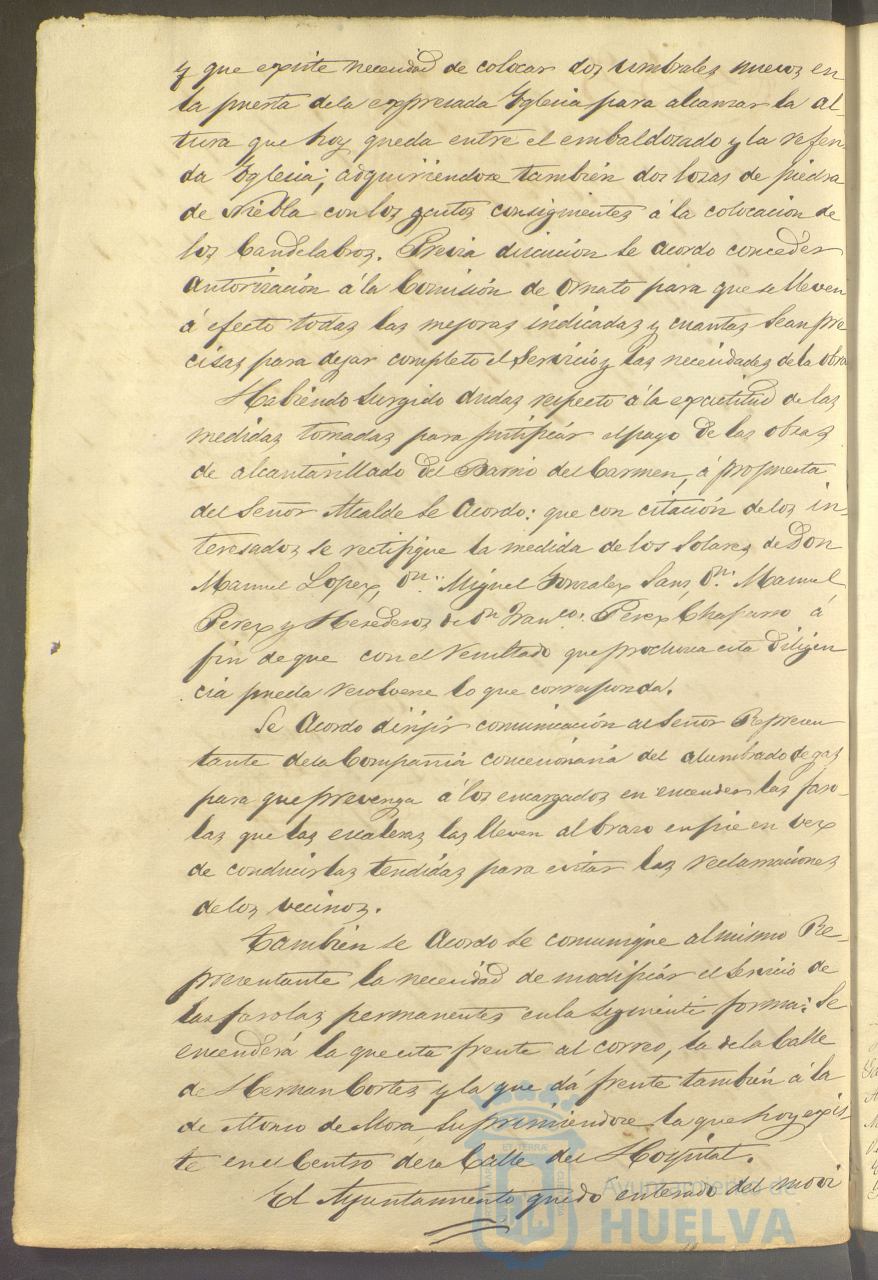 y que existe necesidad de colocar dos umbrales nuevos en
la puerta dela expresada Yglesia para alcanzar la al-
tura que hoy queda entre el embaldozado y la referi
da Yglesia; adquiriendose también dos lozas de piedra
de Niebla con los gastos consiguientes á la colocacion de
los Candelabros. Previa discucion se acordo conceder
autorización á la Comisión de Ornato para que se lleven
á efecto todas las mejoras indicadas y cuantas sean pre
cisas para dejar completo el Servicio y las necesidades de la obra
Habiendo surgido dudas respecto á la exactitud de las
medidas tomadas para justificár el pago de las obras
de alcantarillado del Barrio del Carmen, á propuesta
del Señor Alcalde se Acordo: que con citación de los in-
teresados se rectifique la medida de los Solares de Don
Manuel Lopez, Dn. Miguel Gonzalez Sans, Dn. Manuel
Perez y Herederos de Dn Franco. Perez Chaparro á
fin de que con el resultado que produzca esta diligen
cia pueda resolverse lo que corresponda.
Se Acordo dirijir comunicación al Señor Represen
tante dela Compañia concesionaria del alumbrado de gas
para que prevenga á los encargados en encender las faro-
las que las escaleras las lleven al brazo en pie en vez
de conducirlas tendidas para evitar las reclamaciones
de los vecinos.
También se Acordo se comunique al mismo Re-
presentante la necesidad de modificár el servicio de
las farolas permanentes en la siguiente forma: Se
encenderá la que esta frente al correo, la de la Calle
de Hernan Cortes y la que dá frente también á la
de Alonso de Mora suprimiendose la que hoy exis-
te en el Centro de la Calle del Hospital.
El Ayuntamiento quedo enterado del movi
Ayuntamiento de
HUELVA